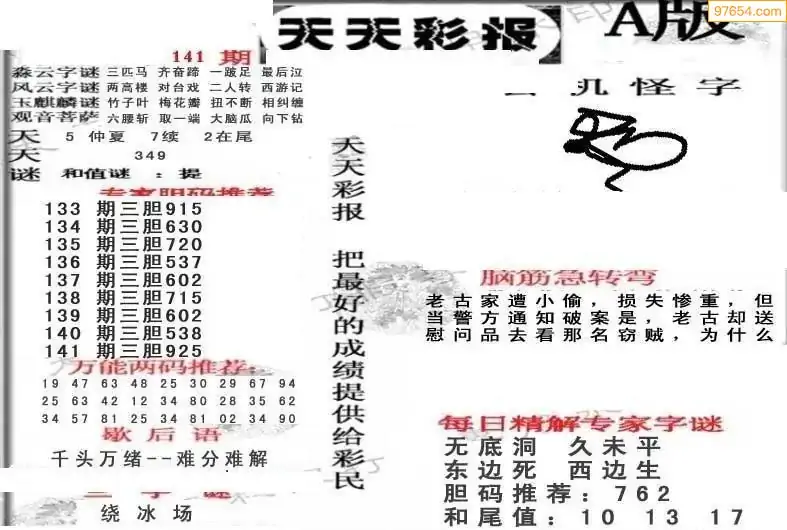 97654.com
天天彩报
A版
141 期
森云字谜 三匹马 齐奋蹄 一跛足 最后泣
风云字谜 两高楼 对台戏 二人转 西游记
玉麒麟谜 竹子叶 梅花瓣 扭不断 相纠缠
观音菩萨 六腰斩 取一端 大脑瓜 向下钻
天 5 仲夏 7续 2在尾
天 349
谜 和值谜 : 提
专家胆码推荐
133 期三胆915
134 期三胆630
135 期三胆720
136 期三胆537
137 期三胆602
138 期三胆715
139 期三胆602
140 期三胆538
141 期三胆925
万能两码推荐:
19 47 63 48 25 30 29 67 94
25 63 42 12 34 80 28 35 62
34 57 81 25 34 81 02 34 90
歇后语
千头万绪--难分难解
字谜
绕冰场
天天彩报 把最好的成绩提供给彩民
玑怪字
脑筋急转弯
老古家遭小偷，损失惨重，但
当警方通知破案是，老古却送
慰问品去看那名窃贼，为什么
每日精解专家字谜
无底洞 久未平
东边死 西边生
胆码推荐: 762
和尾值: 10 13 17